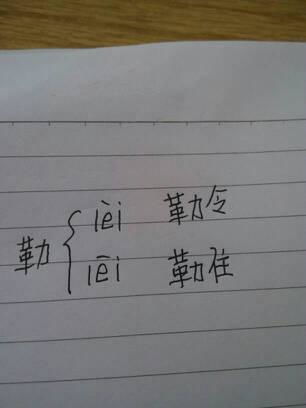 勒
lèi 勒令
lēi 勒住